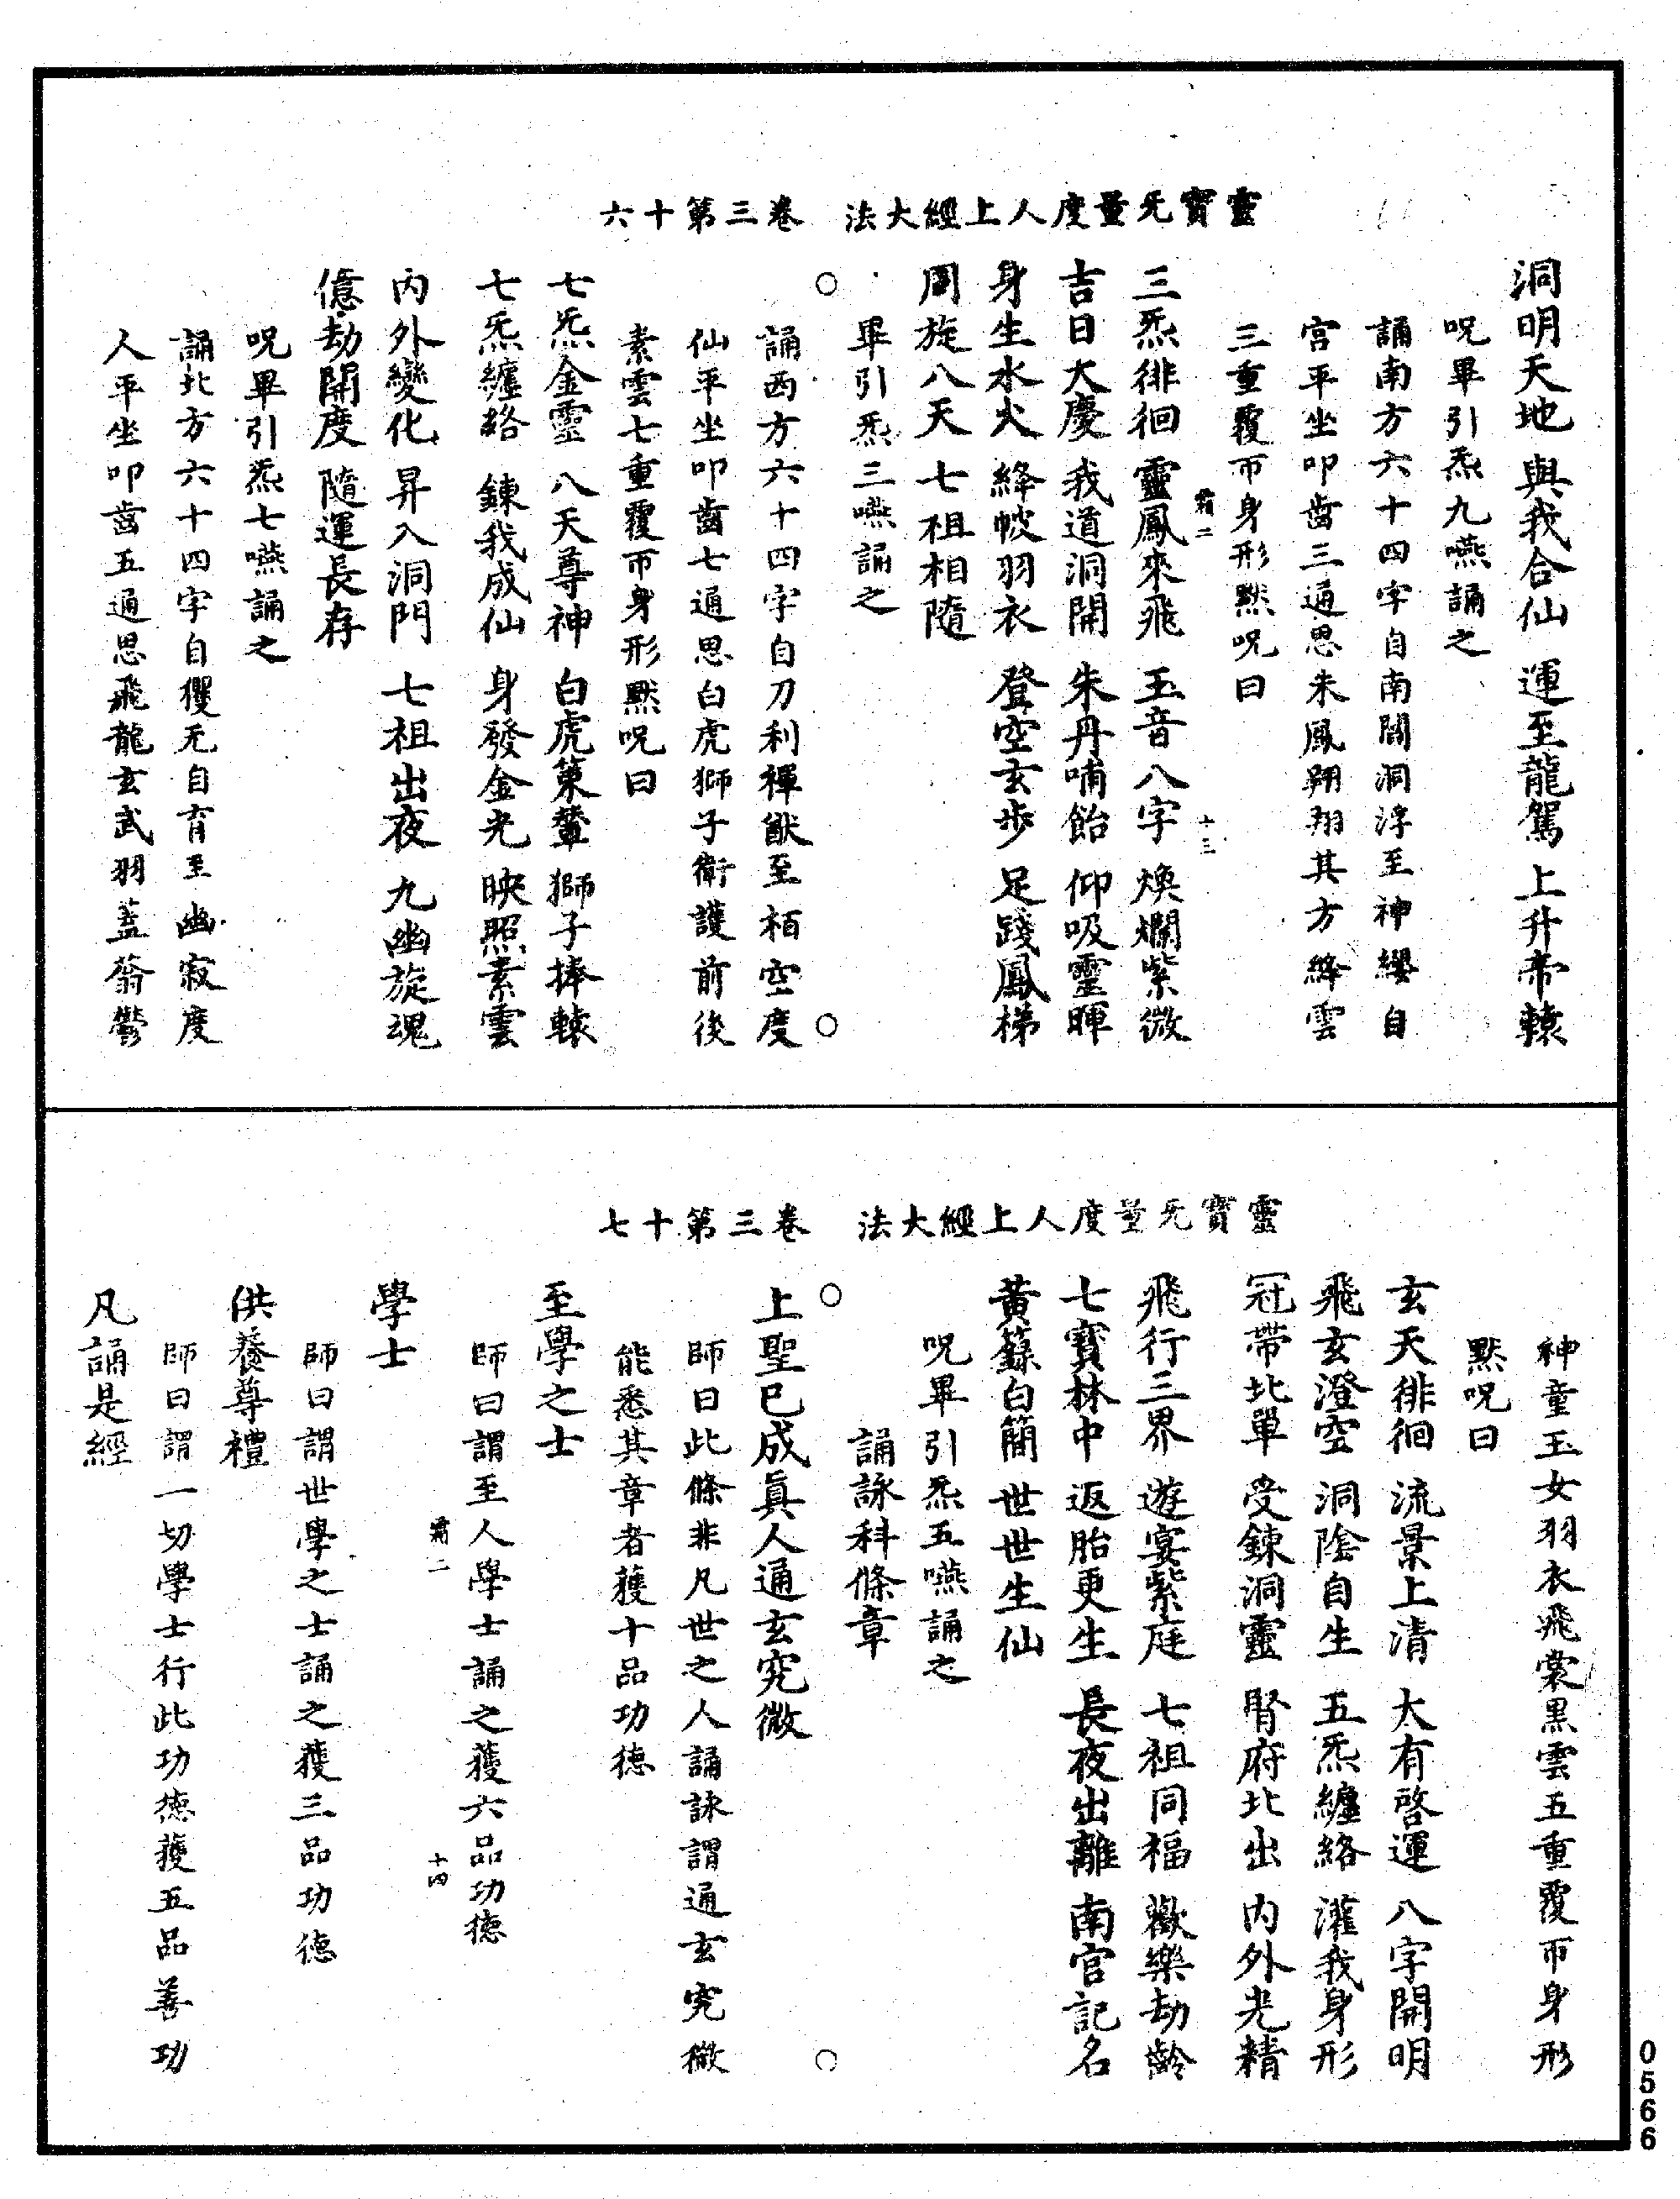 靈寶无量度人上經大法 卷三第十六
洞明天地 與我合仙 運至龍駕 上升帝轅
呪畢引炁九嚥誦之
誦南方六十四字自南閻洞浮至神纓自
宮平坐叩齒三通思朱鳳翔翔其方絳雲
三重覆帀身形默呪曰
霜二 十三
三炁徘徊 靈鳳來飛 玉音八字 煥爛紫微
吉日大慶 我道洞開 朱丹哺飴 仰吸靈暉
身生水火 絳帔羽衣 登空玄步 足踐鳳梯
周旋八天 七祖相隨
畢引炁三嚥誦之
○ ○
誦西方六十四字自刀利禪猷至栢空度
仙平坐叩齒七通思白虎獅子衛護前後
素雲七重覆帀身形默呪曰
七炁金靈 八天尊神 白虎策輦 獅子捧轅
七炁纏絡 鍊我成仙 身發金光 映照素雲
內外變化 昇入洞門 七祖出夜 九幽旋魂
億劫開度 隨運長存
呪畢引炁七嚥誦之
誦北方六十四字自玃无自育至幽寂度
人平坐叩齒五通思飛龍玄武羽蓋蓊鬱
靈寶无量度人上經大法 卷三第十七
神童玉女羽衣飛裳黑雲五重覆帀身形
默呪曰
玄天徘徊 流景上清 太有啓運 八字開明
飛玄澄空 洞陰自生 五炁纏絡 灌我身形
冠帶北單 受鍊洞靈 腎府北出 內外光精
飛行三界 遊宴紫庭 七祖同福 歡樂劫齡
七寶林中 返胎更生 長夜出離 南官記名
黃籙白簡 世世生仙
呪畢引炁五嚥誦之
誦詠科條章
○ ○
上聖已成眞人通玄究微
師曰此條非凡世之人誦詠謂通玄究微
能悉其章者獲十品功德
至學之士
師曰謂至人學士誦之獲六品功德
霜二 十四
學士
師曰謂世學之士誦之獲三品功德
供養尊禮
師曰謂一切學士行此功德獲五品善功
凡誦是經
0566